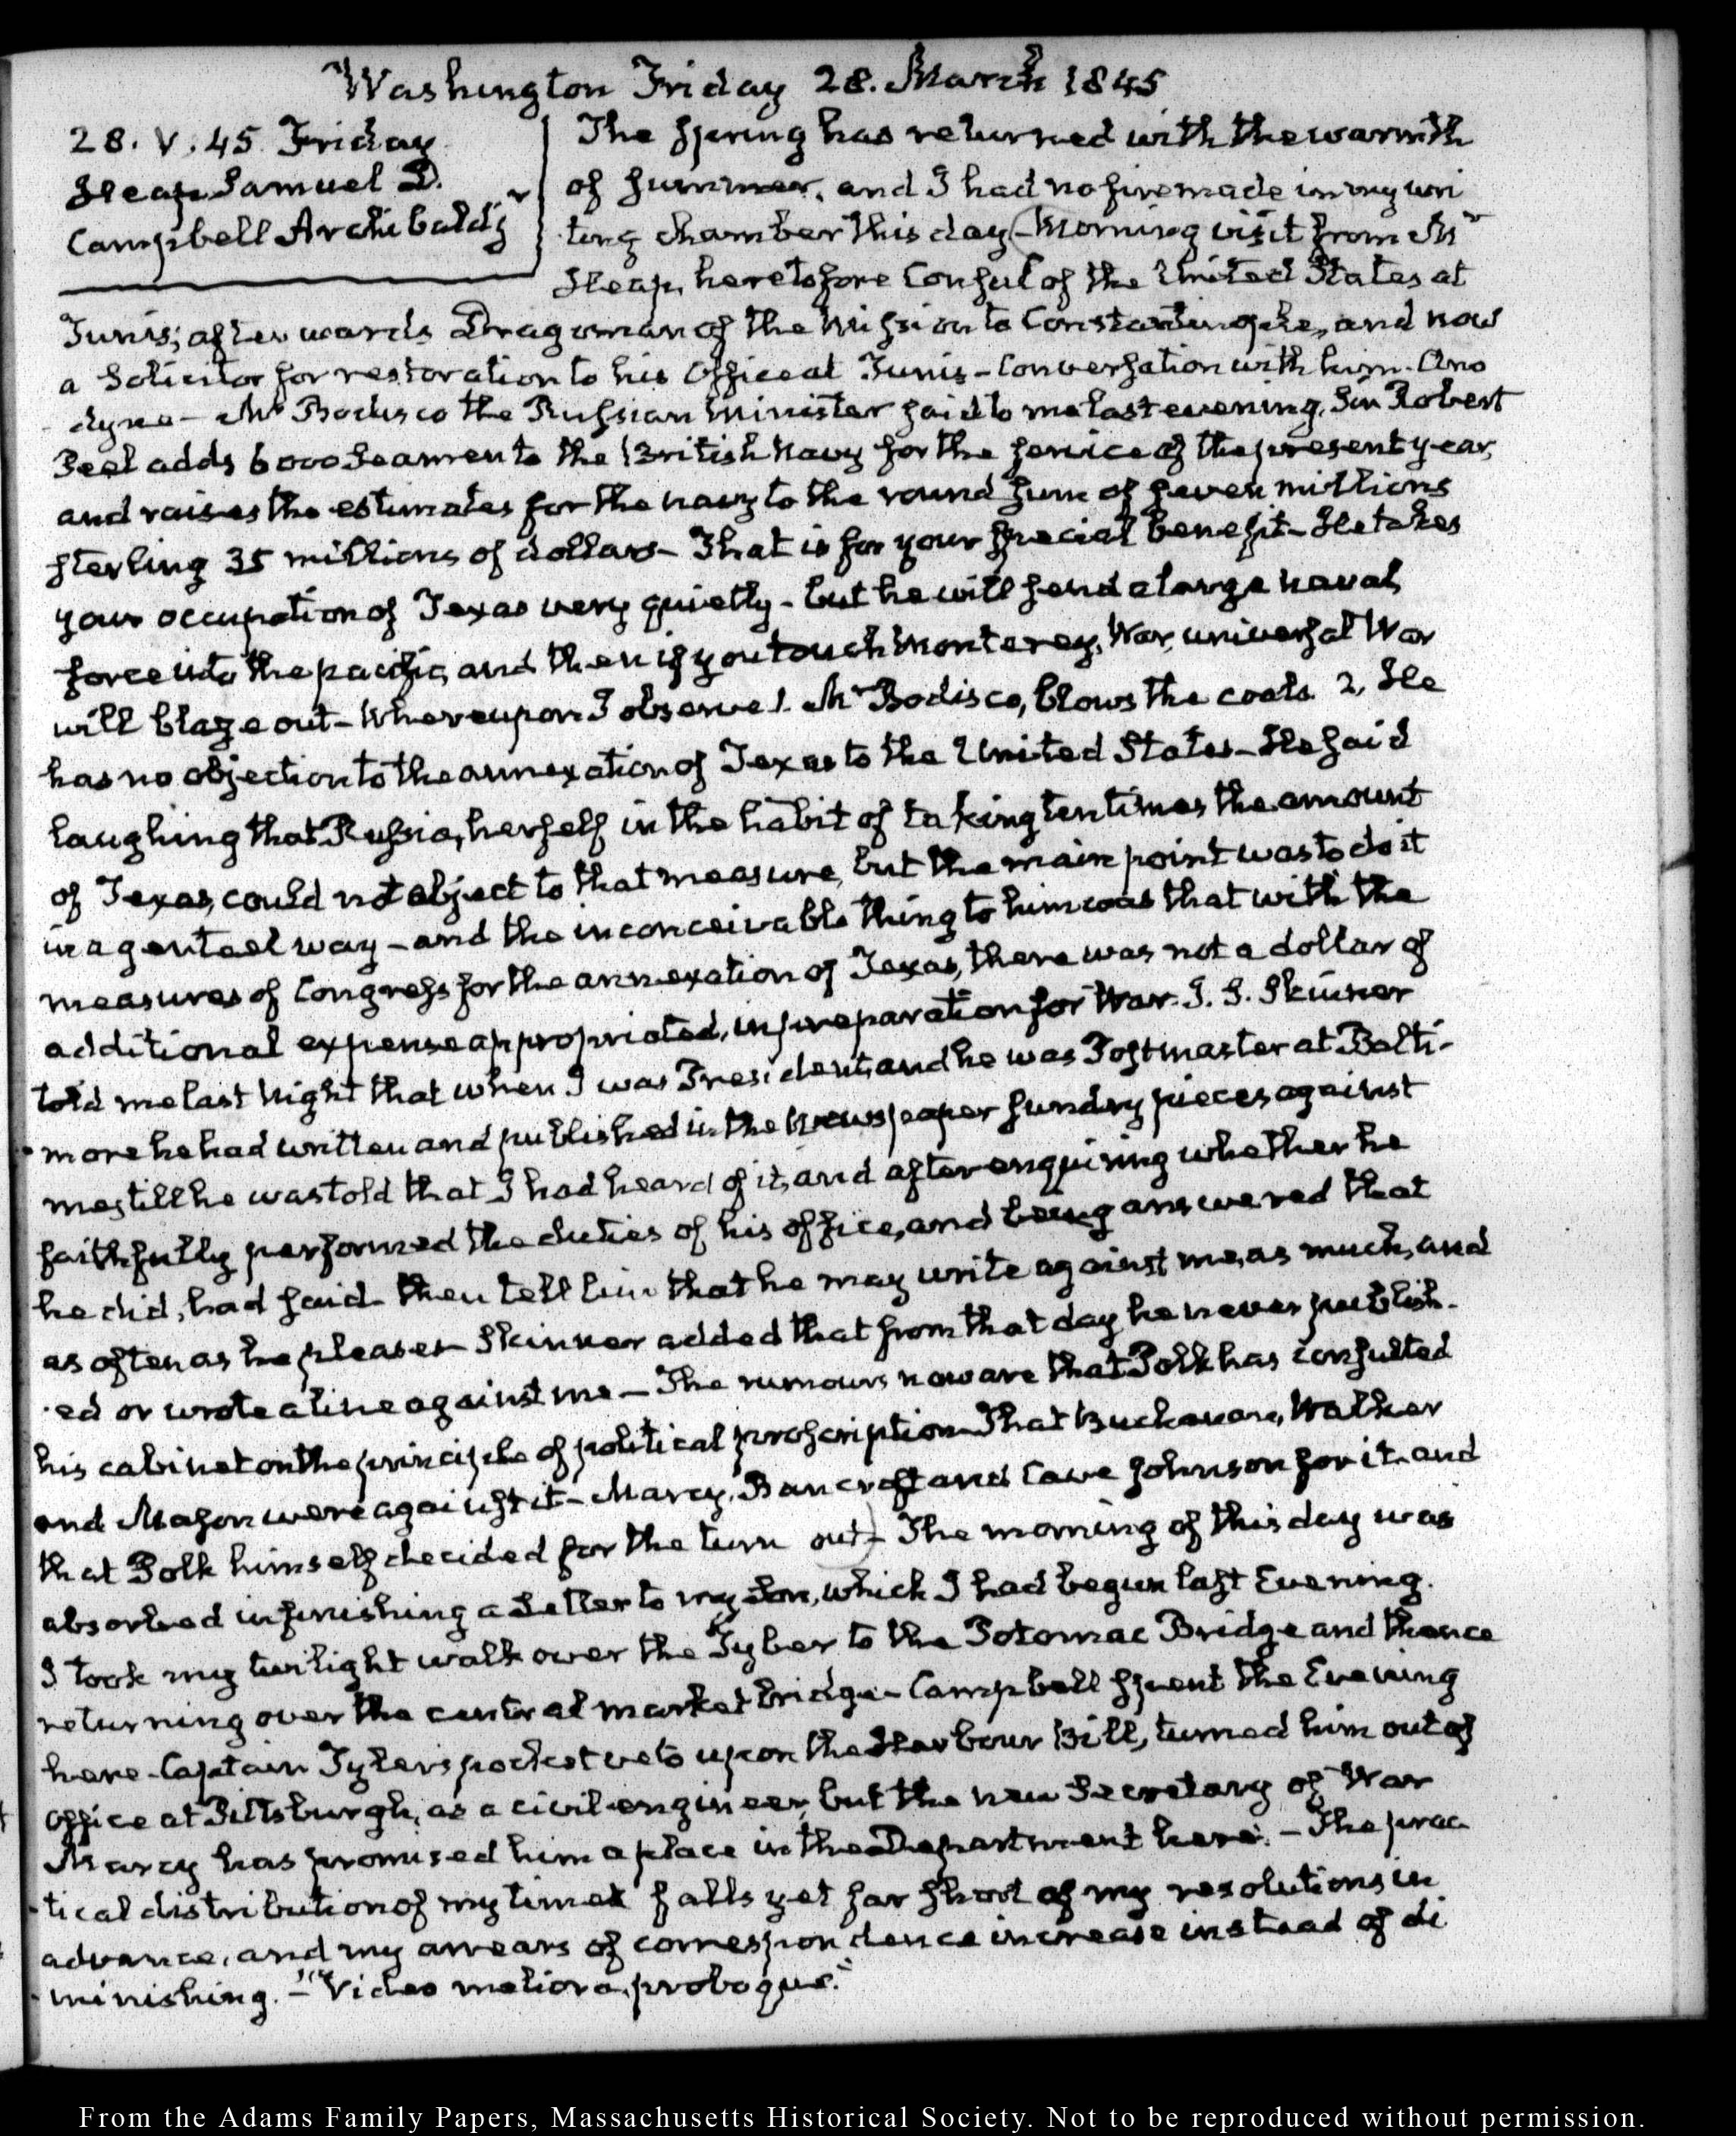 Washington Friday 28. March 1845
28. V. 45. Friday
Heap Samuel D.
Campbell Archibald j
The Spring has returned with the warmth
of summer, and I had no fire made in my wri
ting chamber this day — Morning visit from Mr
Heap, heretofore Consul of the United States at
Tunis; afterwards Dragoman of the Mission to Constantinople, and now
a Solicitor for restoration to his Office at Tunis — Conversation with him. Ano
dyne — Mr Bodisco the Russian Minister said to me last evening, Sir Robert
Peel adds 6000 Seamen to the British Navy for the service of the present year,
and raises the estimates for the navy to the round sum of seven millions
sterling 35 millions of dollars — That is for your special benefit — He takes
your occupation of Texas very quietly — but he will send a large naval
force into the pacific, and then if you touch Monterey, War, universal War
will blaze out — Whereupon I observe 1. Mr Bodisco, blows the coals. 2, He
has no objection to the annexation of Texas to the United States — He said
laughing that Russia, herself in the habit of taking ten times the amount
of Texas, could not object to that measure, but the main point was to do it
in a genteel way — and the inconceivable thing to him was that with the
measures of Congress for the annexation of Texas, there was not a dollar of
additional expense appropriated, in preparation for War. J. S. Skinner
told me last Night that when I was President, and he was Postmaster at Balti-
more he had written and published in the Newspaper sundry pieces against
me, till he was told that I had heard of it, and after enquiring whether he
faithfully performed the duties of his office, and being answered that
he did, had said — then tell him that he may write against me, as much, and
as often as he pleases — Skinner added that from that day he never publish-
ed or wrote a line against me — The rumours now are that Polk has consulted
his cabinet on the principle of political proscription — That Buchanan, Walker
and Mason were against it — Marcy, Bancroft and Cave Johnson for it, and
that Polk himself decided for the turn out — The morning of this day was
absorbed in finishing a Letter to my Son, which I had begun last Evening.
I took my twilight walk over the Tyber to the Potomac Bridge and thence
returning over the central market bridge — Campbell spent the Evening
here — Captain Tyler's pocket veto upon the Harbour Bill, turned him out of
Office at Pittsburgh, as a civil engineer, but the new Secretary of War
Marcy has promised him a place in the Department here. — The prac-
tical distribution of my time falls yet far short of my resolutions in
advance, and my arrears of correspondence increase instead of di
minishing. — "Video meliora, proboque."
From the Adams Family Papers, Massachusetts Historical Society. Not to be reproduced without permission.